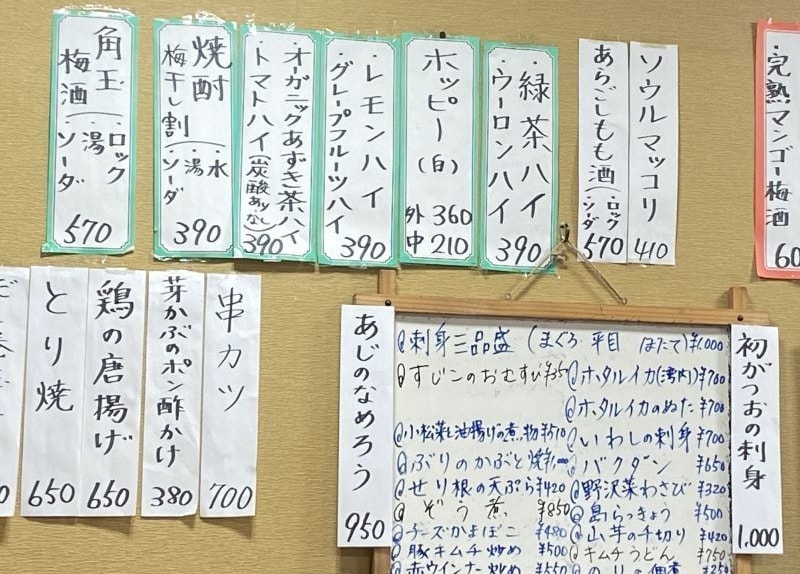 角玉
梅酒
・ロック
・湯
・ソーダ
570
焼酎
梅干し割
・水
・湯
・ソーダ
390
・オーガニックあずき茶ハイ
・トマトハイ(炭酸ありなし)
390
・レモンハイ
・グレープフルーツハイ
390
ホッピー(白)
外 360
中 210
・緑茶ハイ
・ウーロンハイ
390
ソウルマッコリ
410
あらごしもも酒(・ロック・ソーダ)
570
・完熟マンゴー梅酒
60
とり焼
650
鶏の唐揚げ
650
芽かぶのポン酢かけ
380
串カツ
700
あじのなめろう
950
刺身三品盛(まぐろ 平目 ほたて)¥1,000
すじこのおむすび¥35
小松菜と油揚げの煮物¥510
ぶりのかぶと焼
せり根の天ぷら¥420
ぞう煮 ¥850
チーズかまぼこ ¥480
豚キムチ炒め ¥500
赤ウインナー炒め ¥550
ホタルイカ(湾内)¥700
ホタルイカのぬた ¥700
いわしの刺身 ¥700
バクダン ¥650
野沢菜わさび ¥320
島らっきょう ¥500
山芋の千切り ¥420
キムチうどん ¥750
のりの佃煮 ¥250
初がつおの刺身
1,000